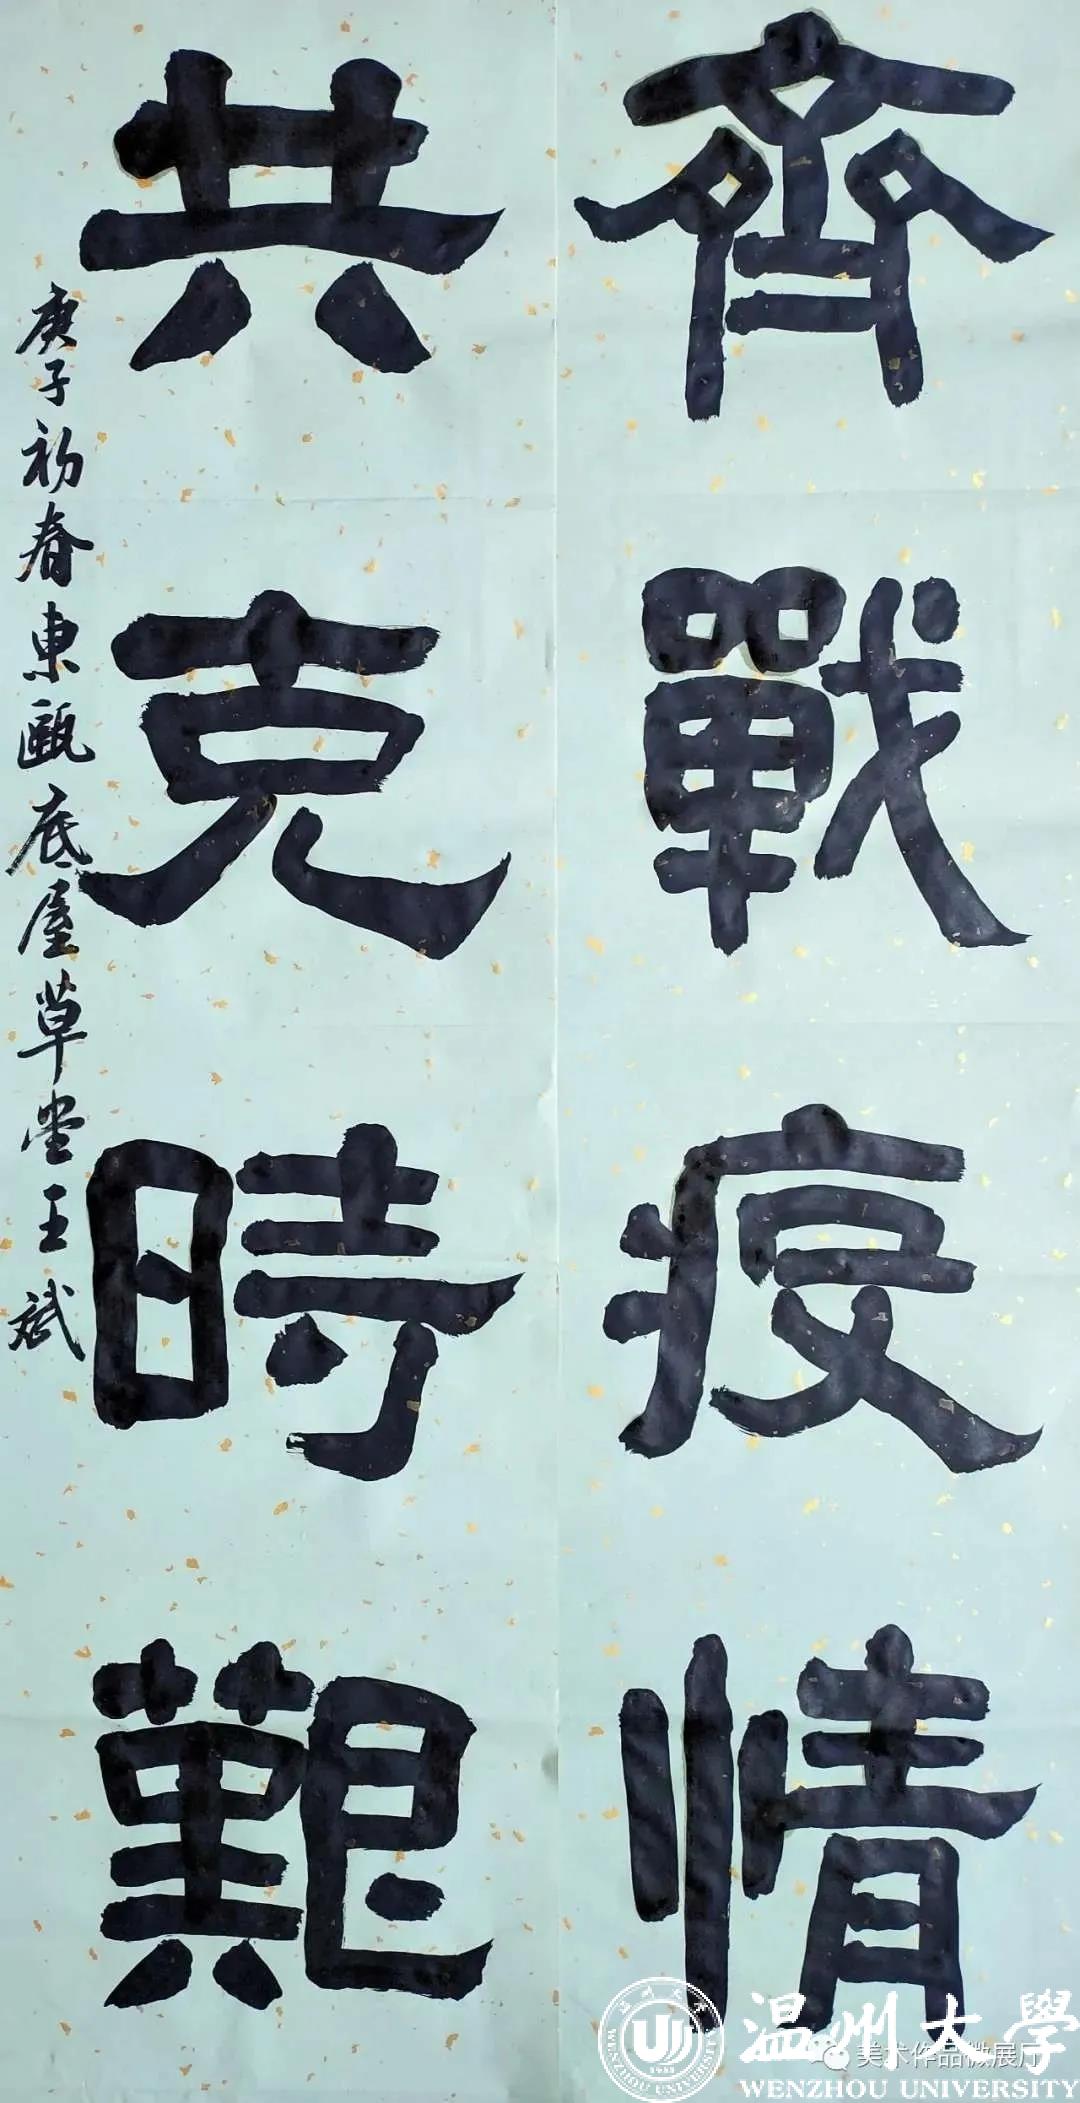 齊戰疫情
共克時艱
庚子初春東甌底屋草堂王斌
温州大學
WENZHOU UNIVERSITY
美术作品微展厅
WENZHOU UNIVERSITY